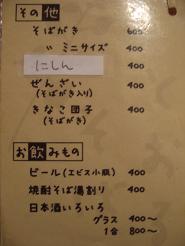 その他
そばがき 600
〃 ミニサイズ 400
にしん 400
ぜんざい 400
(そばがき入り)
きなこ団子 400
(そばがき)
お飲みもの
ビール(エビス小瓶) 400
焼酎そば湯割り 400
日本酒いろいろ
グラス 400〜
1合 800〜